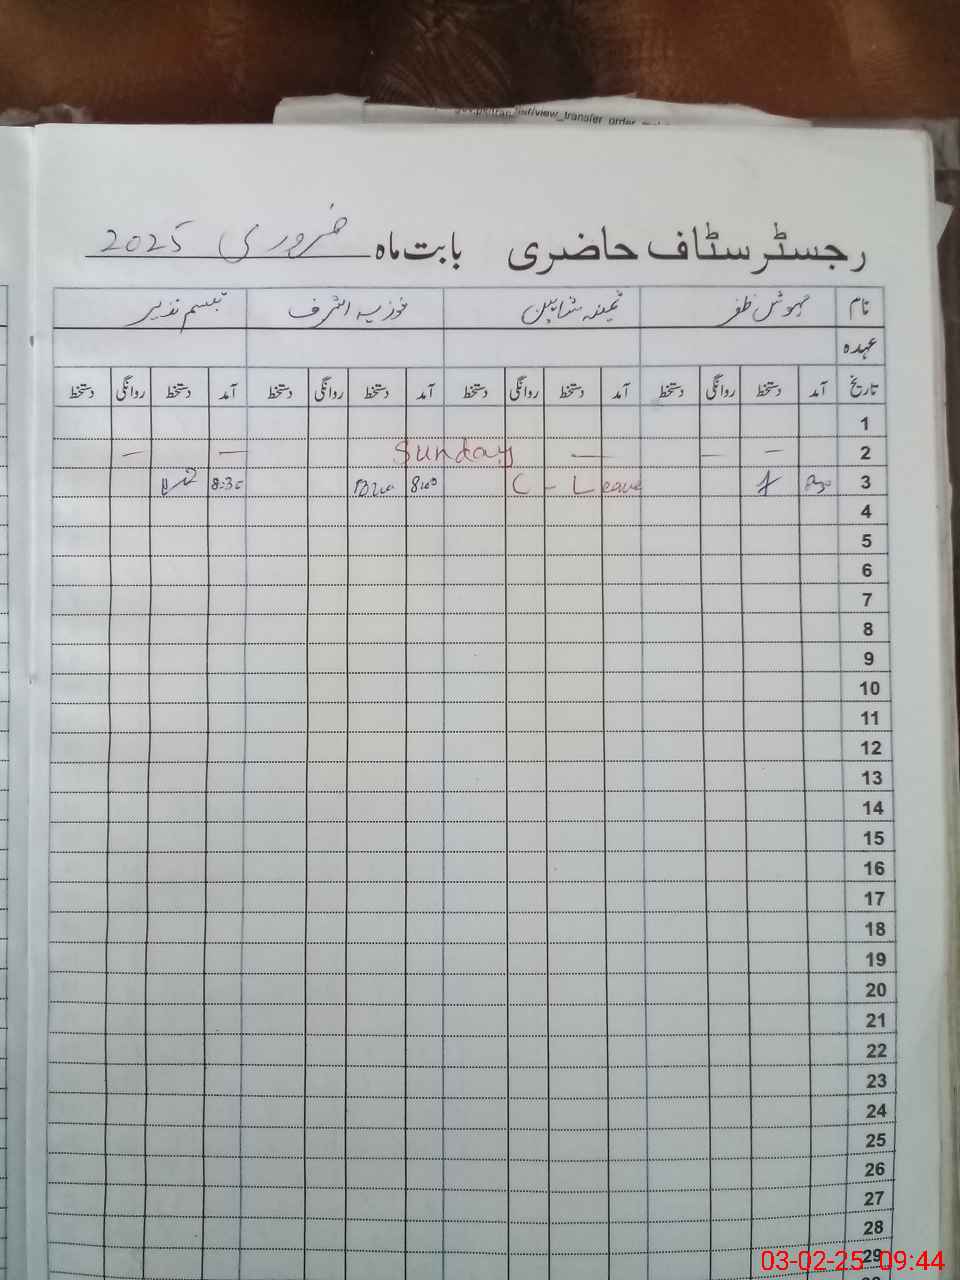 view_transfer_order
رجسٹر سٹاف حاضری بابت ماہ فروری 2025
نام مہوش ظفر ثمینہ شاہین فوزیہ اشرف تبسم نذیر
عہدہ
تاریخ آمد دستخط روانگی دستخط آمد دستخط روانگی دستخط آمد دستخط روانگی دستخط آمد دستخط روانگی دستخط
1
2 — — — Sunday — —
3 C - Leave 8:00 8:30
4
5
6
7
8
9
10
11
12
13
14
15
16
17
18
19
20
21
22
23
24
25
26
27
28
29
03-02-25 09:44